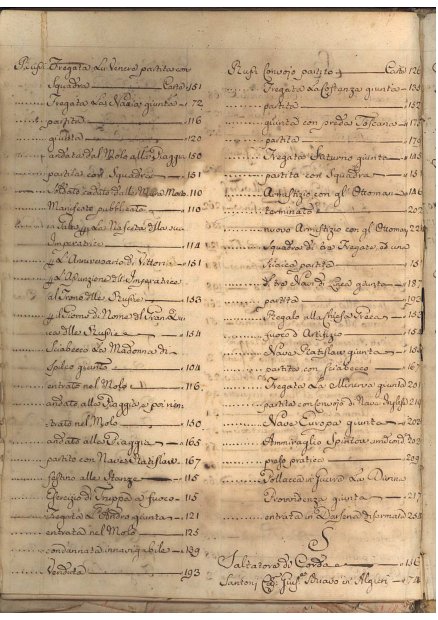 Russi Fregata La Venere partita con
Squadra Carte 151
Fregata La Nadia giunta 72
partita 116
giunta 120
andata dal Molo alla Piaggia 150
partita con Squadra 151
110
Manifesto pubblicato 110
in Festa p. la Nascita della sua
Imperatrice 114
p. L'Anniversario di Vittoria 151
p. L'Assunzione dell'Imperatrice
al Trono delle Russie 153
p. il Giorno di Nome del Gran Du
ca delle Russie 154
Sciabecco La Madonna di
giunto 104
entrato nel Molo 116
andato alla Piaggia e poi rien
trato nel Molo 150
andato alla Piaggia 165
partito con Nave Ratislaw 167
festino alle Stanze 115
Esercizio di Truppa a fuoco 115
Fregata S. Andrea giunta 121
entrata nel Molo 125
condannata innavigabile 139
Venduta 193
Russi Convojo partito Carte 126
Fregata La Costanza giunta 135
partita 157
giunta con preda Toscana
partita 179
Fregata Saturno giunta 145
partita con Squadra 151
Armistizio con gl'Ottomani 146
terminato 202
nuovo Armistizio con gl'Ottomani 224
Squadra di Fregate, ed una
partita 151
di tre Navi di Linea giunta 187
partita 192
Regalo alla Chiesa Greca 153
fuoco d'Artifizio 153
Nave Ratislaw giunta 154
partita con Sciabecco 167
Fregata La Minerva giunta 201
partita con Convojo di Nave Inglesi 214
Nave Europa giunta 203
Ammiraglio Spiritow 203
preso pratica 209
Pollacca La Divina
Provvidenza giunta 217
entrata in Darsena disarmata 234
S
Saltatore di Corda 156
Santoni Giuse. Bravo in Algieri 74